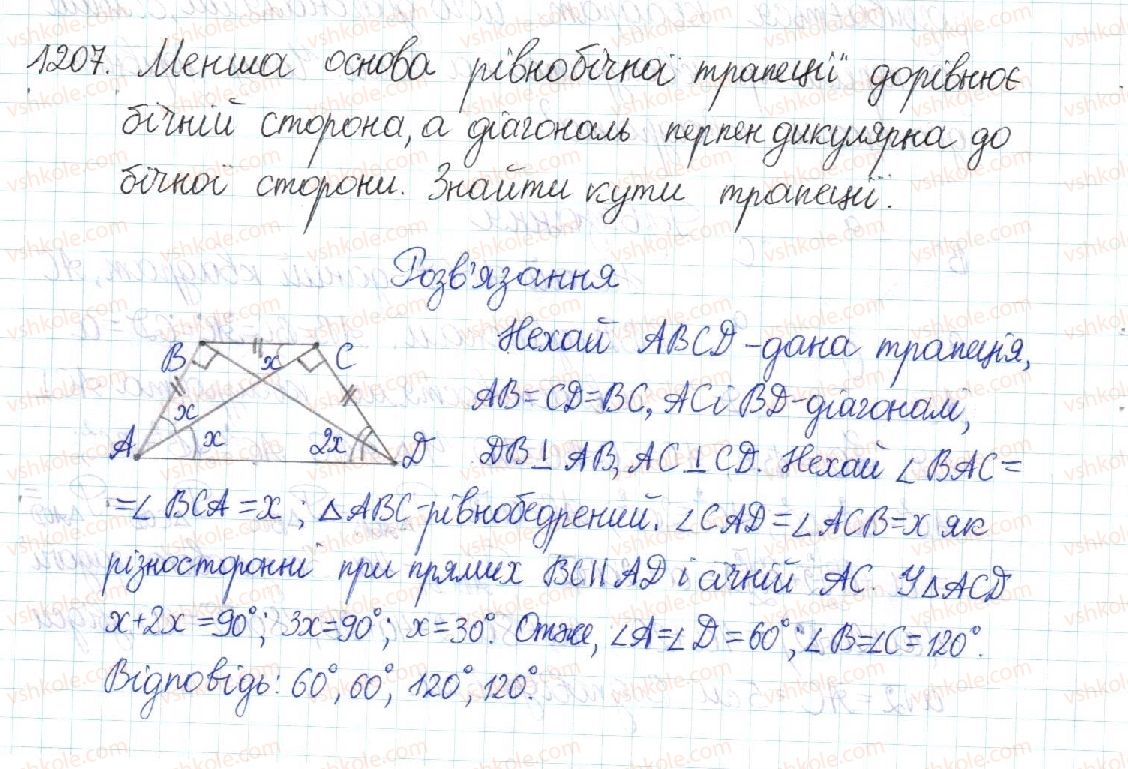 1207. Менша основа рівнобічної трапеції дорівнює
бічній сторона, а діагональ перпендикулярна до
бічної сторони. Знайти кути трапеції.
Розв'язання
B C x x x 2x A D
Нехай ABCD - дана трапеція,
AB=CD=BC, AC і BD - діагоналі,
DB⊥AB, AC⊥CD. Нехай ∠BAC=
=∠BCA=x; △ABC - рівнобедрений. ∠CAD=∠ACB=x як
різносторонні при прямих BC||AD і січній AC. У △ACD
x+2x=90°; 3x=90°; x=30°. Отже, ∠A=∠D=60°; ∠B=∠C=120°.
Відповідь: 60°, 60°, 120°, 120°.